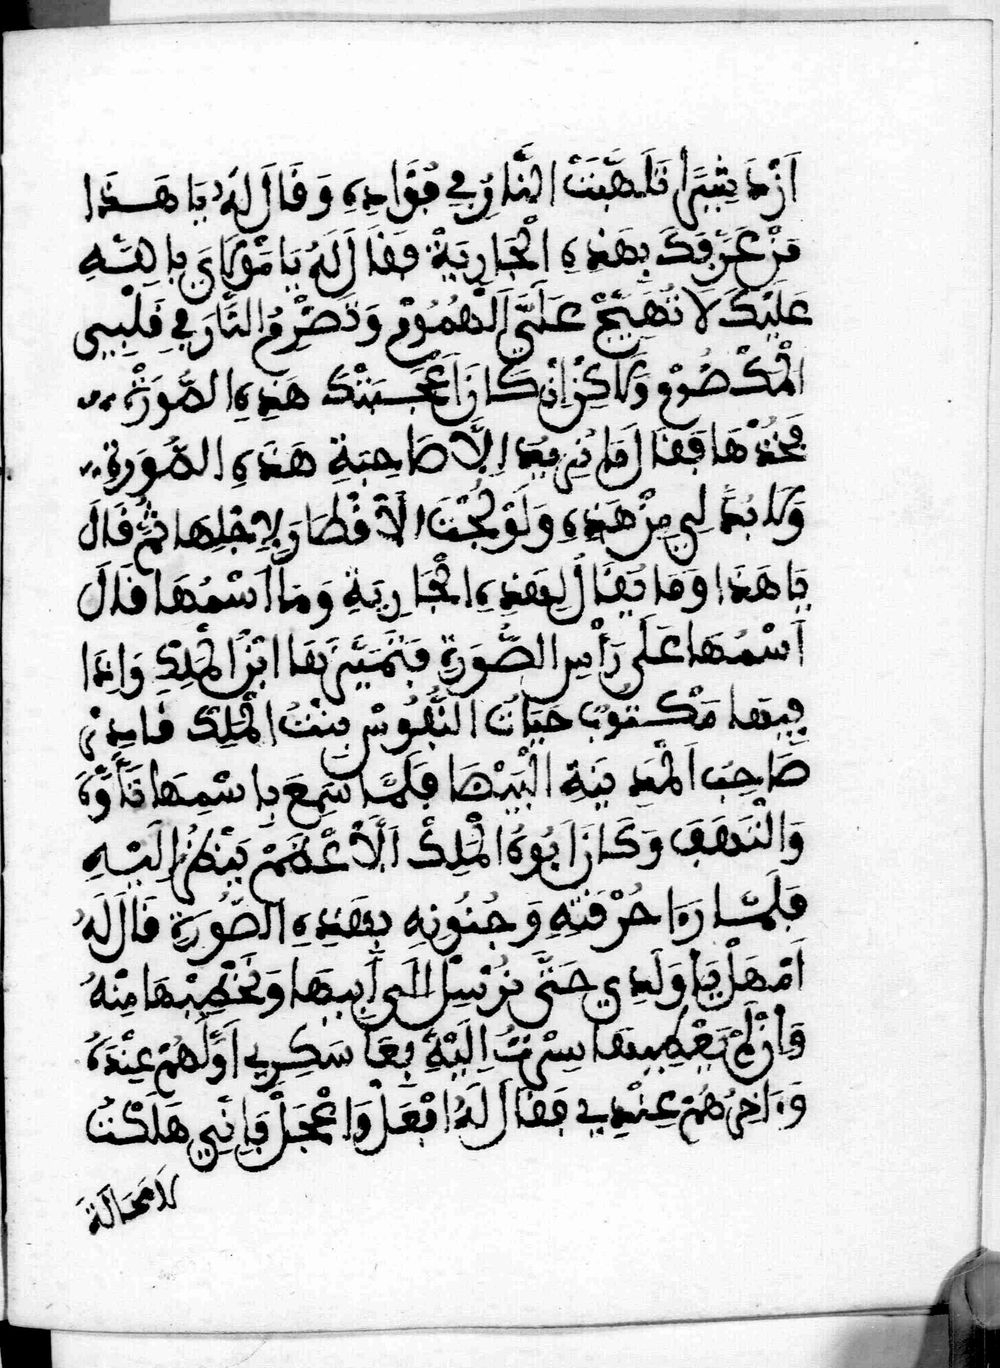 اَزْدَشِيرَا تَلَهَّبَتْ النَّارُ فِي فُؤَادِهِ وَقَالَ لَهُ يَا هَذَا
مَنْ عَرَفَكَ بِهَذِهِ الْجَارِيَةْ فَقَالَ لَهُ يَا مَوْلَايَ بِاللهِ
عَلَيْكَ لَا تُهَيِّجْ عَلَيَّ اَلْهُمُومْ وَتَضْرِمُ النَّارَ فِي قَلْبِي
الْمَكْضُومْ وَلَاكِنْ اِنْ كَانَ اَعْجَبَتْكَ هَذِهِ الصُّورَةْ
فَخُذْهَا فَقَالَ مَا نُرِيدُ اِلَّا صَاحِبَةِ هَذِهِ الصُّورَةِ
وَلَا بُدَّ لِي مِنْ هَذِهِ وَلَوْ جُبْتَ الْأَقْطَارَ لِاجْلِهَا ثُمَّ قَالَ
يَا هَذَا وَمَا يُقَالُ لِهَذِهِ الْجَارِيَةِ وَمَا اَسْمُهَا قَالَ
اَسْمُهَا عَلَى رَأْسِ الصُّورَةِ فَتَمَيَّزَهَا ابْنُ الْمَلِكِ وَاِذَا
فِيهَا مَكْتُوبٌ حَيَاتُ النُّفُوسْ بِنْتُ الْمَلِكْ قَادِنْ
صَاحِبُ اَلْمَدِينَةِ الْبَيْضَا فَلَمَّا سَمِعَ بِاسْمِهَا تَأَوَّهَ
وَالْتَهَفَ وَكَانَ اَبُوهُ الْمَلِكْ اَلْأَعْظَمْ يَنْظُرُ اِلَيْهِ
فَلَمَّا رَءَا حُرْقَتِهِ وَجُنُونِهِ بِهَذِهِ الصُّورَةِ قَالَ لَهُ
اَمْهَلْ يَا وَلَدِي حَتَّى نُرْسِلْ اِلَى اَبِيهَا وَنَخْطِبْهَا مِنْهُ
وَاِنْ لَمْ يَعْطِيهَا سِرْتُ اِلَيْهِ بِعَسَاكِرِي اَوَّلُهُمْ عِنْدَهُ
وَءَاخِرُهُمْ عِنْدِي فَقَالَ لَهُ افْعَلْ وَاعْجَلْ فَاِنِّي هَلَكْتُ
لَا مَحَالَةَ